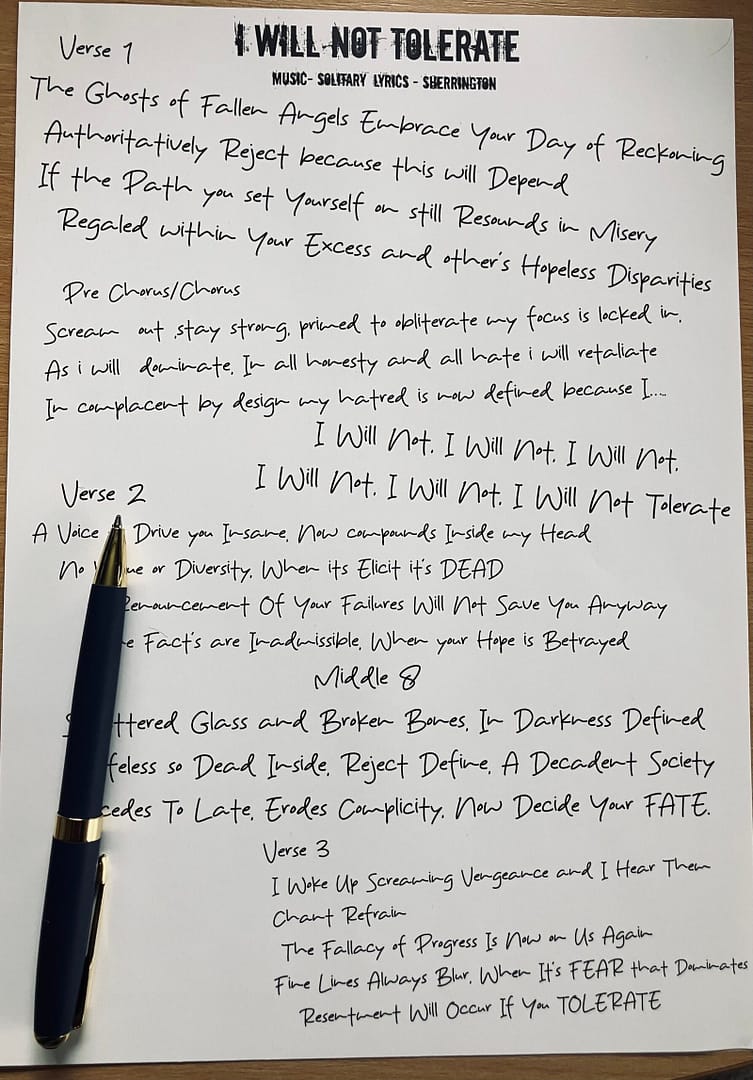 Verse 1
I WILL NOT TOLERATE
MUSIC- SOLITARY LYRICS - SHERRINGTON
The Ghosts of Fallen Angels Embrace Your Day of Reckoning
Authoritatively Reject because this will Depend
If the Path you set Yourself on still Resounds in Misery
Regaled within Your Excess and other's Hopeless Disparities
Pre Chorus/Chorus
Scream out .stay strong. primed to obliterate my focus is locked in.
As i will dominate. In all honesty and all hate i will retaliate
In complacent by design my hatred is now defined because I...
I Will Not. I Will Not. I Will Not.
I Will Not. I Will Not. I Will Not Tolerate
Verse 2
A Voice Drive you Insane. Now compounds Inside my Head
No or Diversity. When its Elicit it's DEAD
Of Your Failures Will Not Save You Anyway
Fact's are Inadmissible. When your Hope is Betrayed
Middle 8
Glass and Broken Bones. In Darkness Defined
so Dead Inside. Reject Define. A Decadent Society
To Late. Erodes Complicity. Now Decide Your FATE.
Verse 3
I Woke Up Screaming Vengeance and I Hear Them
Chant Refrain
The Fallacy of Progress Is Now on Us Again
Fine Lines Always Blur. When It's FEAR that Dominates
Resentment Will Occur If You TOLERATE